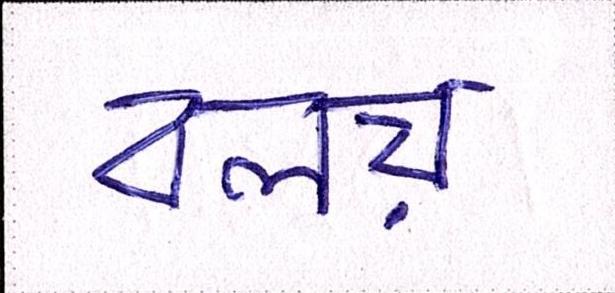 বলয়